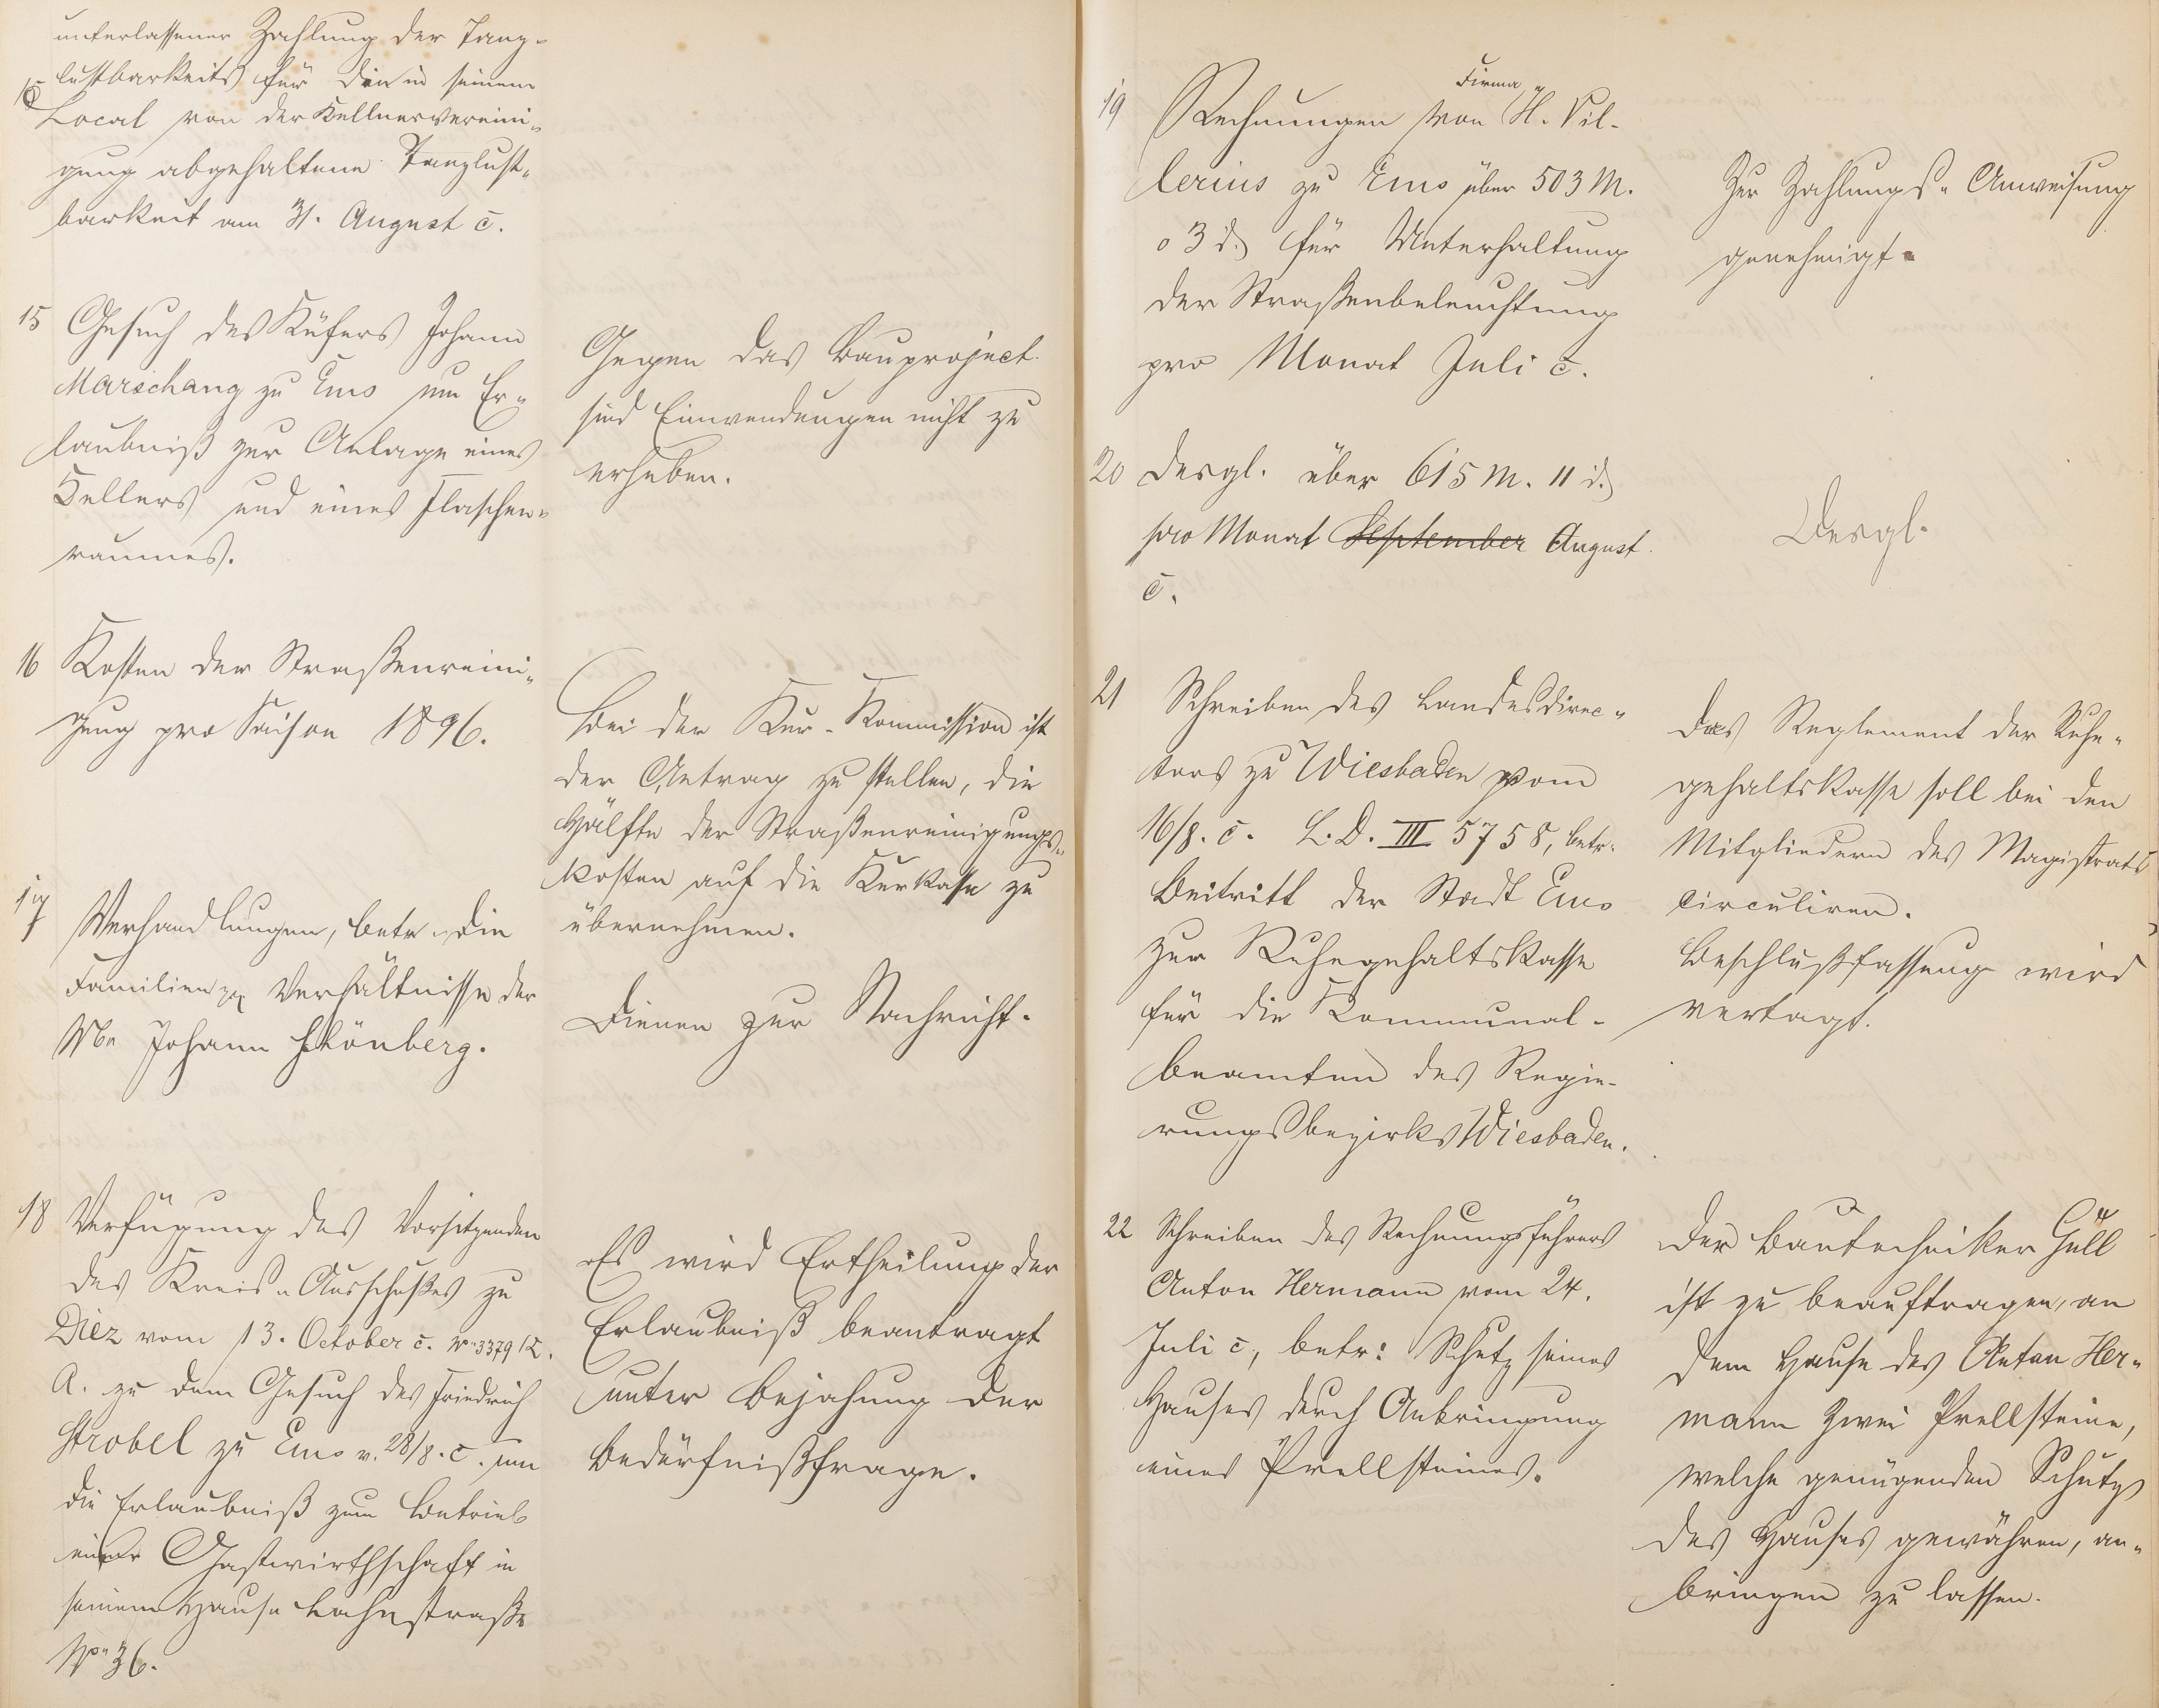 unterlassener Zahlung der Tanz-
lustbarkeits für die in seinem
Local von der Kellnervereini-
gung abgehaltene Tanzlust-
barkeit am 31. August c.
15 Gesuch des Küfers Johann
Marschang zu Ems um Er-
laubniß zur Anlage eines
Kellers und eines Flaschen-
raumes.
Gegen das Bauproject
sind Einwendungen nicht zu
erheben.
16 Kosten der Straßenreini-
gung pro Saison 1896.
Bei der Kur-Kommission ist
der Antrag zu stellen, die
Hälfte der Straßenreinigungs-
kosten auf die Kurkasse zu
übernehmen.
17 Verhandlungen, betr. die
Familien Verhältnisse der
Johann Schönberg.
Dienen zur Nachricht.
18 Verfügung des Vorsitzenden
des Kreis-Ausschußes zu
Diez vom 13. October c. No 3379 K.
A. zu dem Gesuch des Friedrich
Strobel zu Ems v. 28/8. c. um
die Erlaubniß zum Betrieb
einer Gastwirthschaft in
seinem Hause Lahnstraße
No 36.
Es wird Ertheilung der
Erlaubniß beantragt
unter Bejahung der
Bedürfnißfrage.
19 Rechnungen von Firma H. Vil-
lerius zu Ems über 503 M.
03 d. für Unterhaltung
der Straßenbeleuchtung
pro Monat Juli c.
Zur Zahlungs-Anweisung
genehmigt.
20 Desgl. über 615 M. 11 d.
pro Monat September August
c.
Desgl.
21 Schreiben des Landesdirec-
tors zu Wiesbaden vom
16/8. c. L. D. III 5758, betr.
Beitritt der Stadt Ems
zur Ruhegehaltskasse
für die Kommunal-
beamten des Regie-
rungsbezirks Wiesbaden.
Das Reglement der Ruhe-
gehaltskasse soll bei den
Mitgliedern des Magistrats
circuliren.
Beschlußfassung wird
vertagt.
22 Schreiben des Rechnungsführers
Anton Hermann vom 24.
Juli c, betr: Schutz seines
Hauses durch Anbringung
eines Prellsteines.
Der Bautechniker Gull
ist zu beauftragen, an
dem Hause des Anton Her-
mann zwei Prellsteine,
welche genügenden Schutz
des Hauses gewähren, an-
bringen zu lassen.